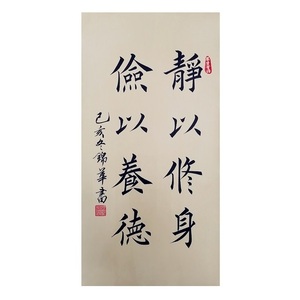 靜以修身
儉以養德
己亥冬錦華書